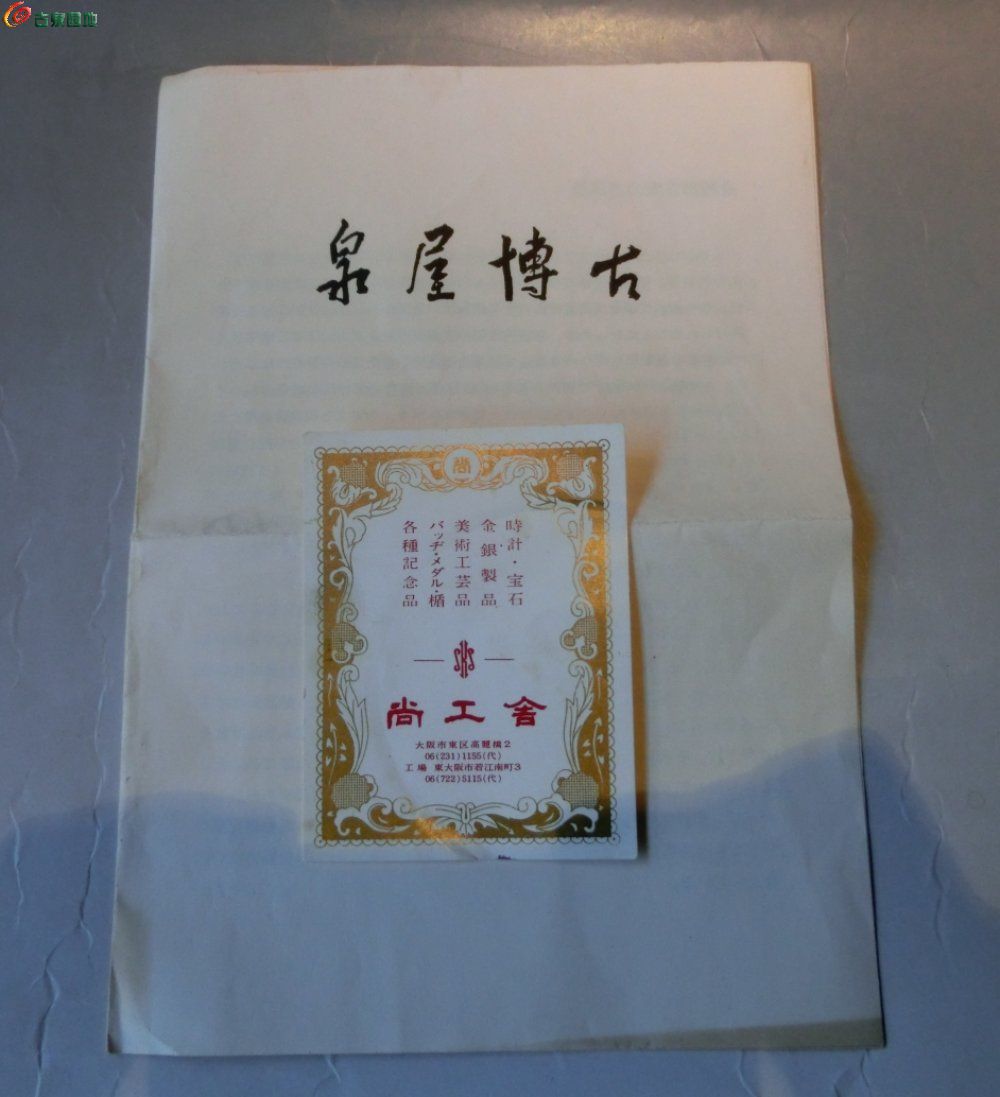 古泉園地
泉屋博古
尚
時計・宝石
金銀製品
美術工芸品
バッヂ・メダル・楯
各種記念品
SKS
尚工舎
大阪市東区高麗橋2
06(231)1155(代)
工場 東大阪市若江南町3
06(722)5115(代)